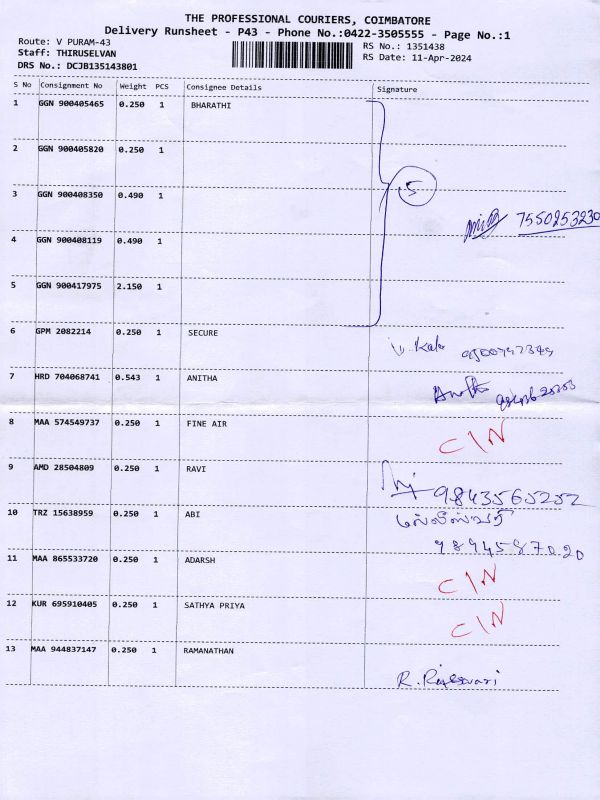 THE PROFESSIONAL COURIERS, COIMBATORE
Delivery Runsheet - P43 - Phone No.:0422-3505555 - Page No.:1
Route: V PURAM-43
Staff: THIRUSELVAN
DRS No.: DCJB135143801
RS No.: 1351438
RS Date: 11-Apr-2024
S No Consignment No Weight PCS Consignee Details Signature
1 GGN 900405465 0.250 1 BHARATHI
2 GGN 900405820 0.250 1
5
3 GGN 900408350 0.490 1
7550253230
4 GGN 900408119 0.490 1
5 GGN 900417975 2.150 1
6 GPM 2082214 0.250 1 SECURE
Kala
7 HRD 704068741 0.543 1 ANITHA
8 MAA 574549737 0.250 1 FINE AIR C/N
9 AMD 28504809 0.250 1 RAVI
9843565252
10 TRZ 15638959 0.250 1 ABI
9894587020
11 MAA 865533720 0.250 1 ADARSH C/N
12 KUR 695910405 0.250 1 SATHYA PRIYA C/N
13 MAA 944837147 0.250 1 RAMANATHAN
R. Rajeswari